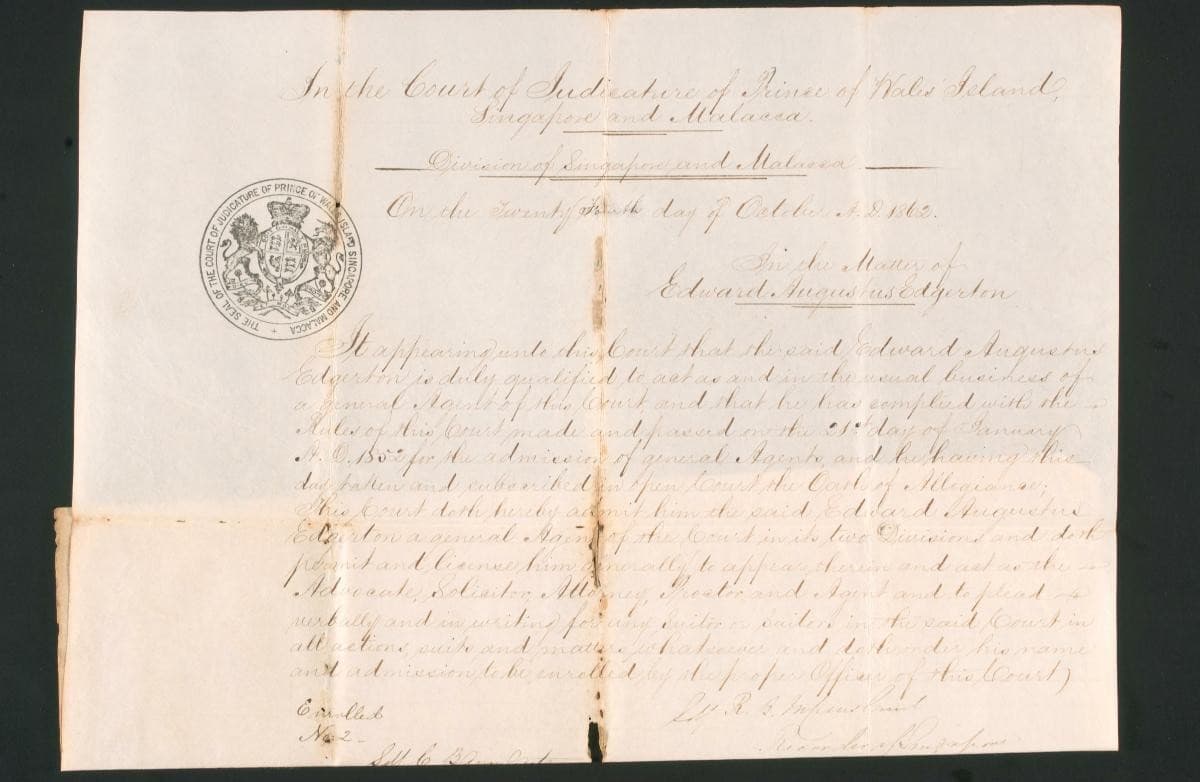 In the Court of Judicature of Prince of Wales Island,
Singapore and Malacca.
Division of Singapore and Malacca
On the Twenty day of October A.D. 1862.
THE SEAL OF THE COURT OF JUDICATURE OF PRINCE OF WALES ISLAND SINGAPORE AND MALACCA
In the Matter of
Edward Augustus Edgerton
It appearing unto this Court that the said Edward Augustus
Edgerton is duly qualified to act as and in the usual business of
a general Agent of this Court and that he has complied with the
Rules of this Court made and passed on the 21st day of January
A.D. 1852 for the admission of general Agents and he having this
day taken and subscribed in open Court the Oath of Allegiance;
This Court doth hereby admit him the said Edward Augustus
Edgerton a general Agent of the Court in its two Divisions and doth
permit and license him generally to appear therein and act as the
Advocate, Solicitor, Attorney, Proctor and Agent and to plead
verbally and in writing for any Suitor or Suitors in the said Court in
all actions, suits and matters whatsoever and doth order his name
and admission to be enrolled by the proper Officer of this Court)
Enrolled
No 2
Sd/ R. B.
Recorder of Singapore
Sd/ C. B.